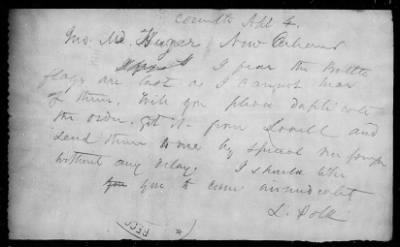 Corinth Apl 4.
Jno. M. Huger, New Orleans
I fear the Battle
flags are lost as I cannot hear
of them. Will you please duplicate
the order. Get it from Lovell and
send them to me by special messenger
without any delay. I should like
you to come immediately
L. Polk